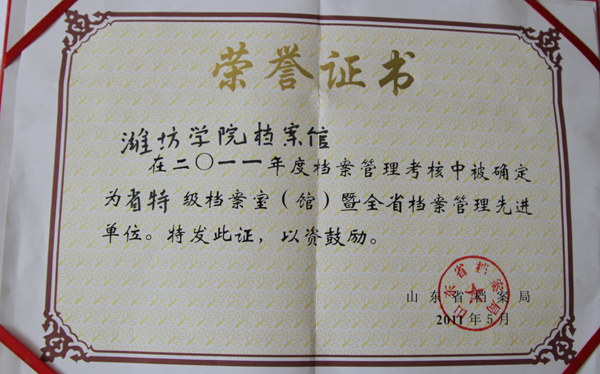 荣誉证书
潍坊学院档案馆
在二〇一一年度档案管理考核中被确定
为省特 级档案室(馆)暨全省档案管理先进
单位。特发此证,以资鼓励。
山东省档案局
山东省档案局
2011年5月